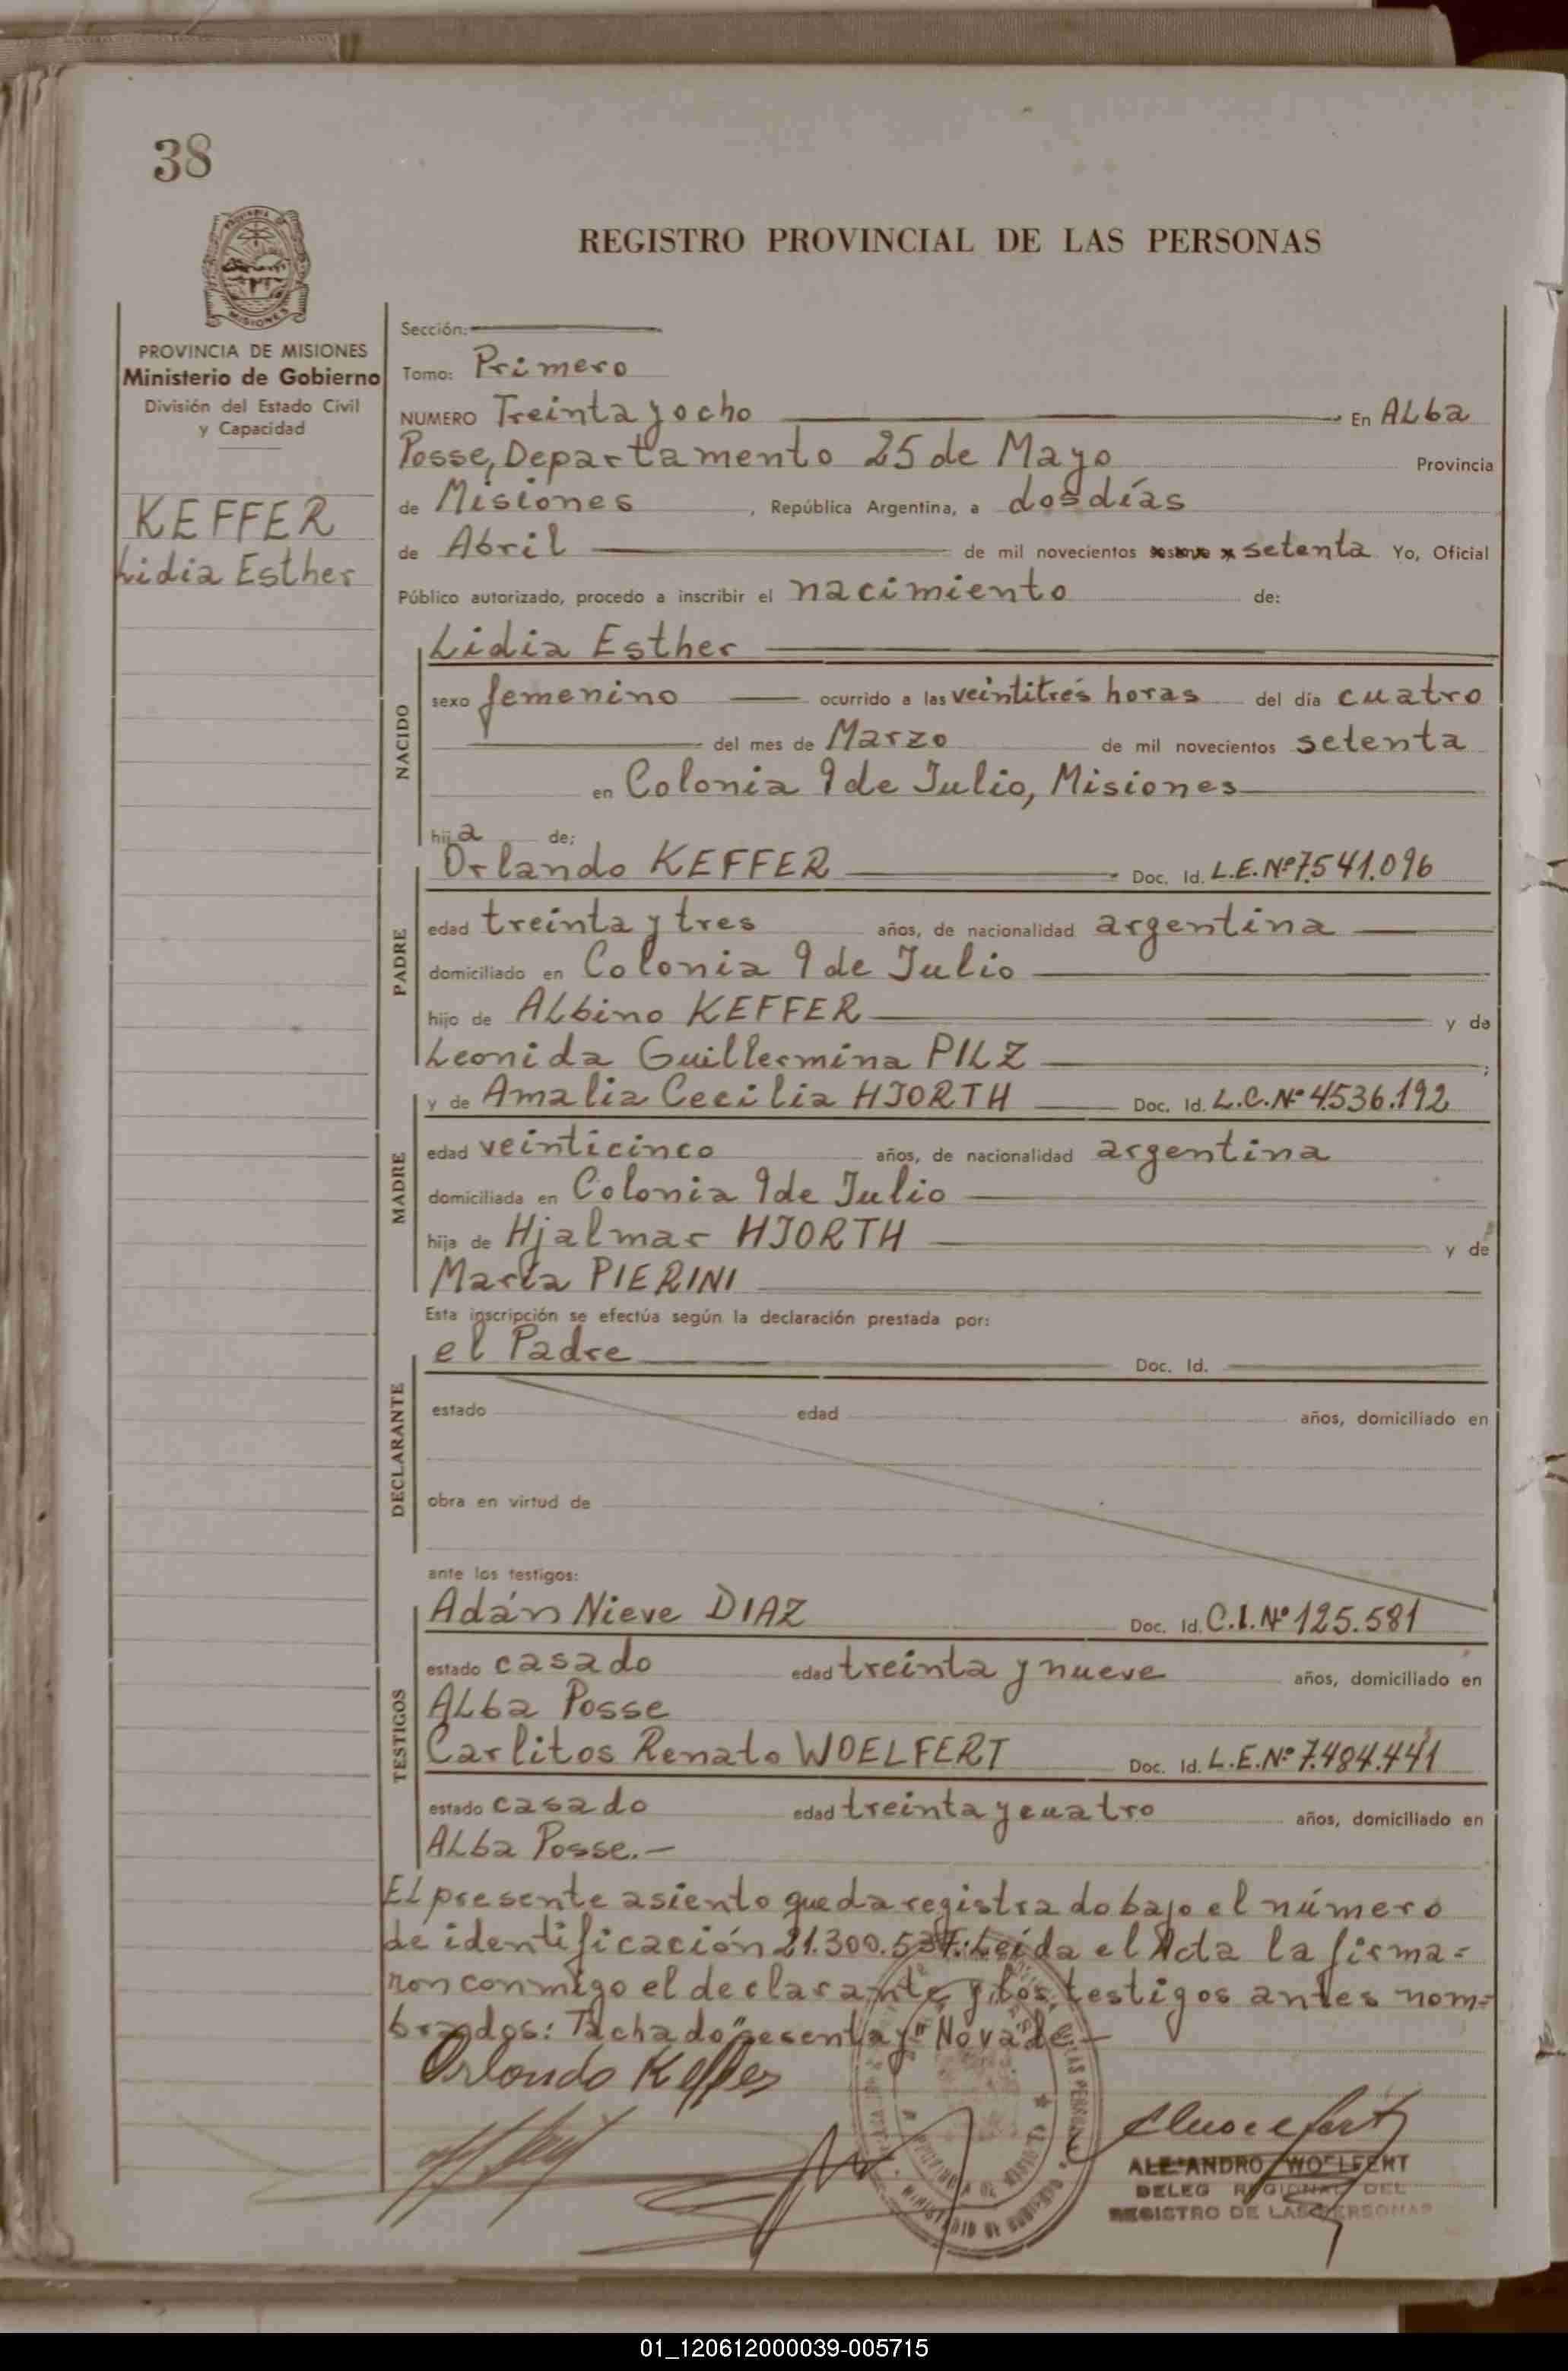 38
REGISTRO PROVINCIAL DE LAS PERSONAS
PROVINCIA DE MISIONES
Ministerio de Gobierno
División del Estado Civil
y Capacidad
KEFFER
Lidia Esther
Sección:
Tomo: Primero
NUMERO Treinta y ocho En ALba
Posse, Departamento 25 de Mayo Provincia
de Misiones, República Argentina, a dos días
de Abril de mil novecientos setenta Yo, Oficial
Público autorizado, procedo a inscribir el nacimiento de:
NACIDO
Lidia Esther
sexo femenino ocurrido a las veintitrés horas del día cuatro
del mes de Marzo de mil novecientos setenta
en Colonia 9 de Julio, Misiones
hija de:
PADRE
Orlando KEFFER Doc. Id. L.E.Nº 7.541.096
edad treinta y tres años, de nacionalidad argentina
domiciliado en Colonia 9 de Julio
hijo de ALbino KEFFER y de
Leonida Guillermina PILZ ;
MADRE
y de Amalia Cecilia HJORTH Doc. Id. L.C.Nº 4.536.192
edad veinticinco años, de nacionalidad argentina
domiciliada en Colonia 9 de Julio
hija de Hjalmar HJORTH y de
María PIERINI
Esta inscripción se efectúa según la declaración prestada por:
DECLARANTE
el Padre Doc. Id.
estado edad años, domiciliado en
obra en virtud de
ante los testigos:
TESTIGOS
Adán Nieve DIAZ Doc. Id. C.I.Nº 125.581
estado casado edad treinta y nueve años, domiciliado en
ALba Posse
Carlitos Renato WOELFERT Doc. Id. L.E.Nº 7.484.441
estado casado edad treinta y cuatro años, domiciliado en
ALba Posse.-
El presente asiento queda registrado bajo el número
de identificación 21.300.537. Leída el Acta la firma=
ron conmigo el declarante y los testigos antes nom=
brados: Tachado "sesenta y" No vale.-
Orlando Keffer
ALEJANDRO WOELFERT
DELEG REGIONAL DEL
REGISTRO DE LAS PERSONAS
01_120612000039-005715